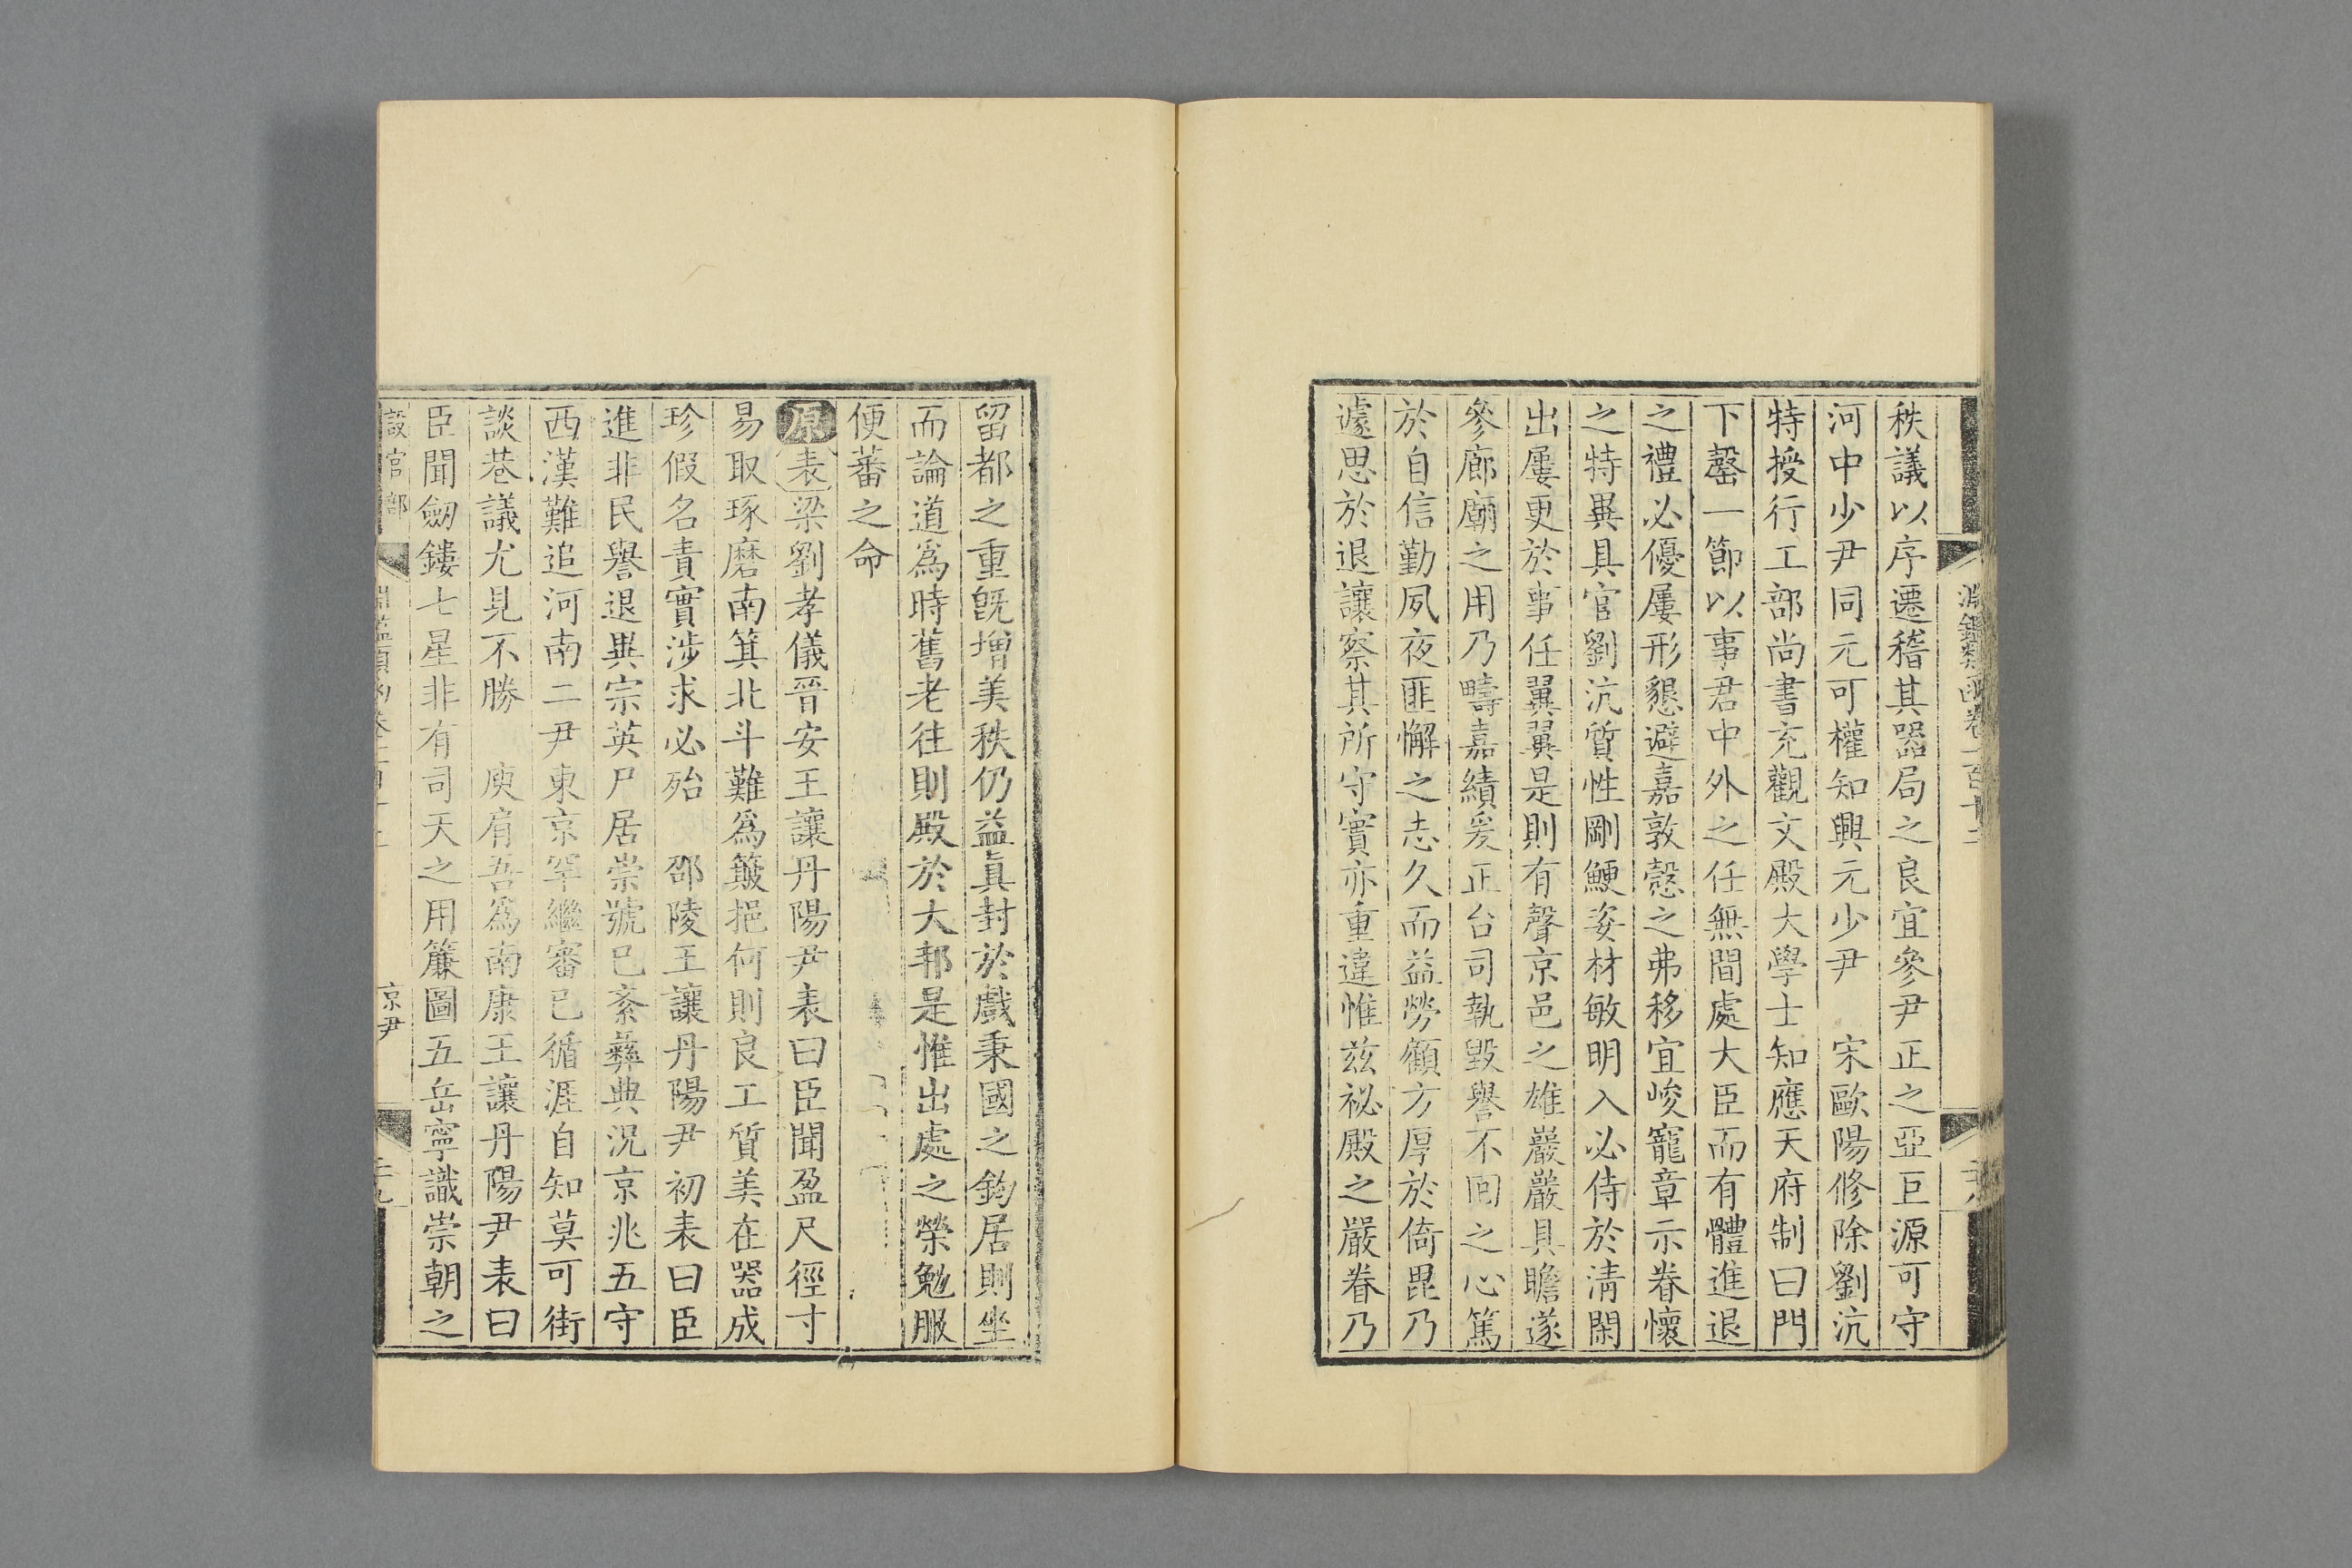 淵鑑類函卷一百十二
秩議以序遷稽其器局之良宜參尹正之亞巨源可守
河中少尹同元可權知興元少尹　宋歐陽修除劉沆
特授行工部尚書充觀文殿大學士知應天府制曰門
下罄一節以事君中外之任無間處大臣而有體進退
之禮必優屢形懇避嘉敦愨之弗移宜峻寵章示眷懷
之特異具官劉沆質性剛鯁姿材敏明入必侍於淸閑
出屢更於事任翼翼是則有聲京邑之雄巖巖具瞻遂
參廊廟之用乃疇嘉績爰正台司執毀譽不回之心篤
於自信勤夙夜匪懈之志久而益勞顧方厚於倚毘乃
遽思於退讓察其所守實亦重違惟茲祕殿之嚴眷乃
留都之重旣增美秩仍益眞封於戲秉國之鈞居則坐
而論道爲時舊老往則殿於大邦是惟出處之榮勉服
便蕃之命
原表梁劉孝儀晉安王讓丹陽尹表曰臣聞盈尺徑寸
易取琢磨南箕北斗難爲簸挹何則良工質美在器成
珍假名責實涉求必殆　邵陵王讓丹陽尹初表曰臣
進非民譽退異宗英尸居崇號已紊彝典況京兆五守
西漢難追河南二尹東京罕繼審已循涯自知莫可街
談巷議尤見不勝　庾肩吾爲南康王讓丹陽尹表曰
臣聞劒鏤七星非有司天之用簾圖五岳寧識崇朝之
設官部　淵鑑類函卷　京尹